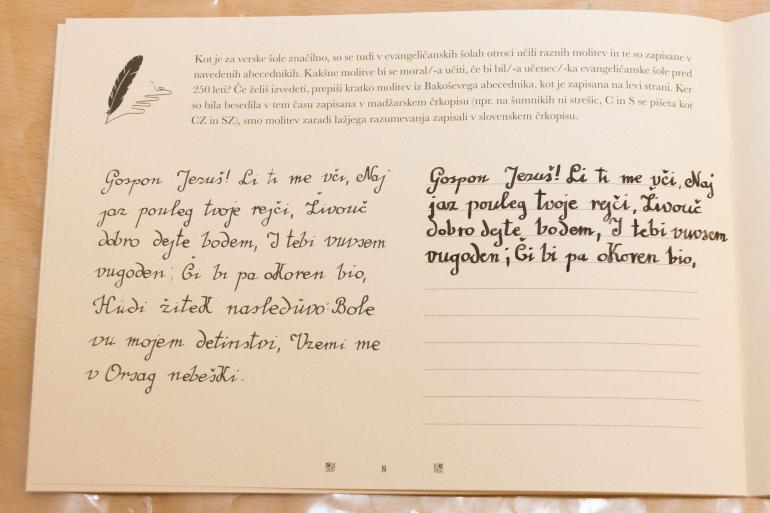 Kot je za verske šole značilno, so se tudi v evangeličanskih šolah otroci učili raznih molitev in te so zapisane v
navedenih abecednikih. Kakšne molitve bi se moral/-a učiti, če bi bil/-a učenec/-ka evangeličanske šole pred
250 leti? Če želiš izvedeti, prepiši kratko molitev iz Bakoševega abecednika, kot je zapisana na levi strani. Ker
so bila besedila v tem času zapisana v madžarskem črkopisu (npr. na šumnikih ni strešic, C in S se pišeta kot
CZ in SZ), smo molitev zaradi lažjega razumevanja zapisali v slovenskem črkopisu.
Gospon Jezuš! Li ti me vči, Naj
jaz pouleg tvoje rejči, Živouč
dobro dejte bodem, I tebi vuvsem
vugoden; Či bi pa Koren bio,
Hüdi žitek nasledüvo: Bole
vu mojem detinstvi, Vzemi me
v Orsag nebeški.
Gospon Jezuš! Li ti me vči, Naj
jaz pouleg tvoje rejči, Živouč
dobro dejte bodem, I tebi vuvsem
vugoden; Či bi pa Koren bio,
8